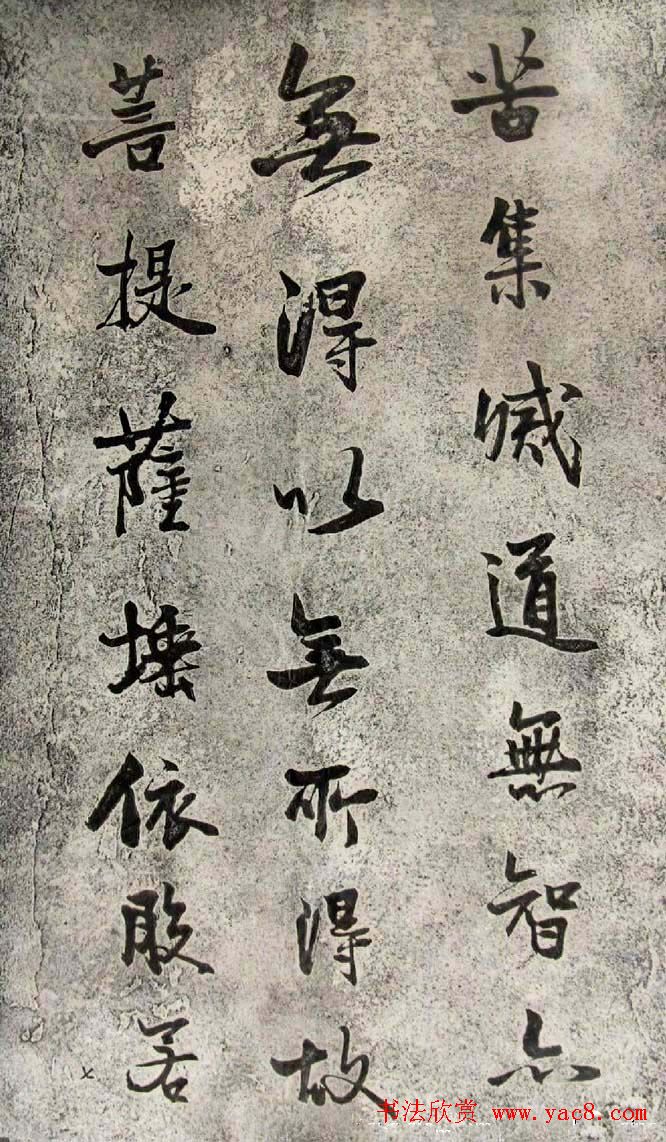 苦集滅道無智亦
無得以無所得故
菩提薩埵依般若
书法欣赏 www.yac8.com